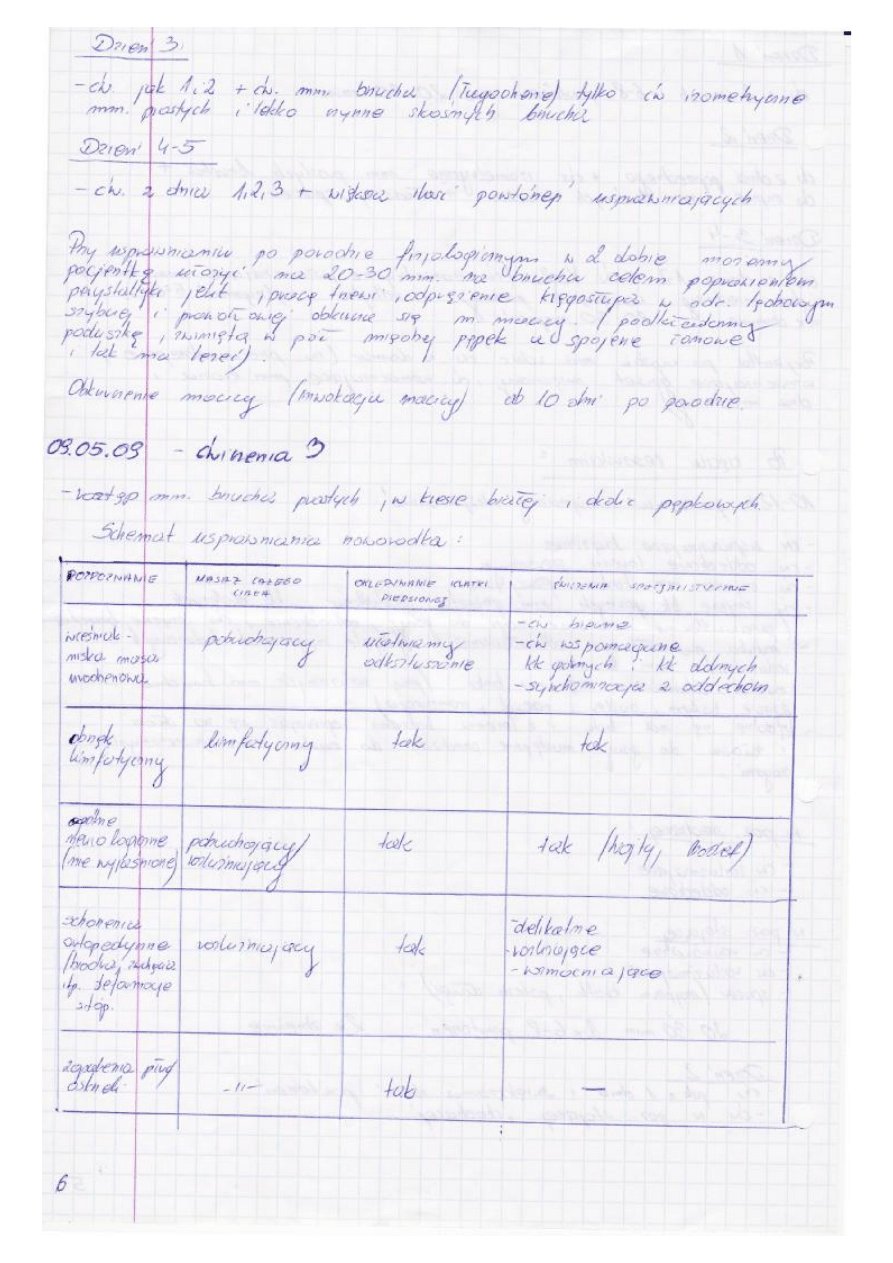 Dzień 3.
- ćw. jak 1 i 2 + ćw. mm. brucha (Tłegoohene) tylko ćw izometryczne
mm. prostych i lekko czynne skośnych brucha
Dzień 4-5
- ćw. z dnia 1,2,3 + większa ilość powtórzeń usprawniających
Przy usprawnianiu po porodzie fizjologicznym w 2 dobie możemy
pacjentkę ułożyć na 20-30 min. na brzuchu celem poprawienia
perystaltyki jelit, pracę trzewi, odprężenie kręgosłupa w odc. lędźwiowym
szybciej i prawidłowej obkurcza się m. macicy. (podkładamy
poduszkę, zwiniętą w pół między pępek a spojenie łonowe
i tak ma leżeć)
Obkurczenie macicy (inwolucja macicy) do 10 dni po porodzie.
09.05.09 - ćwiczenia 3
- rozstęp mm. brzucha prostych, w kresie białej i okolic pępkowych.
Schemat usprawniania noworodka:
ROZPOZNANIE MASAŻ CAŁEGO CIAŁA OKLEPYWANIE KLATKI PIERSIOWEJ ĆWICZENIA SPECJALISTYCZNE
wcześniak - niska masa urodzeniowa
pobudzający
ułatwiamy odksztuszanie
- ćw bierne
- ćw wspomagane
kk górnych i kk dolnych
- synchronizacja z oddechem
obrzęk limfatyczny
limfatyczny
tak
tak
neurologiczne (nie wyjaśnione)
pobudzający/ rozluźniający
tak
tak (Vojty, Bobath)
schorzenia ortopedyczne
itp. deformacje stóp.
rozluźniający
tak
- delikatne
- rozluźniające
- wzmacniające
-11-
tak
—
6